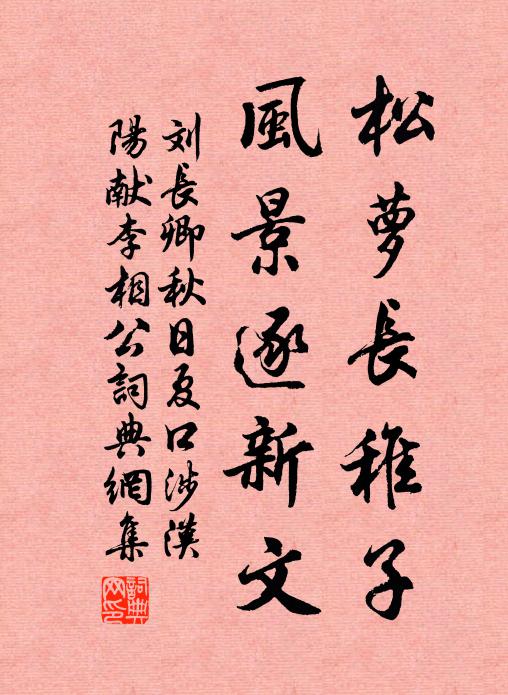 松萝長稚子
風景逐新文
刘長卿秋日夏口涉漢
陽献李相公詞典網集
詞典網印